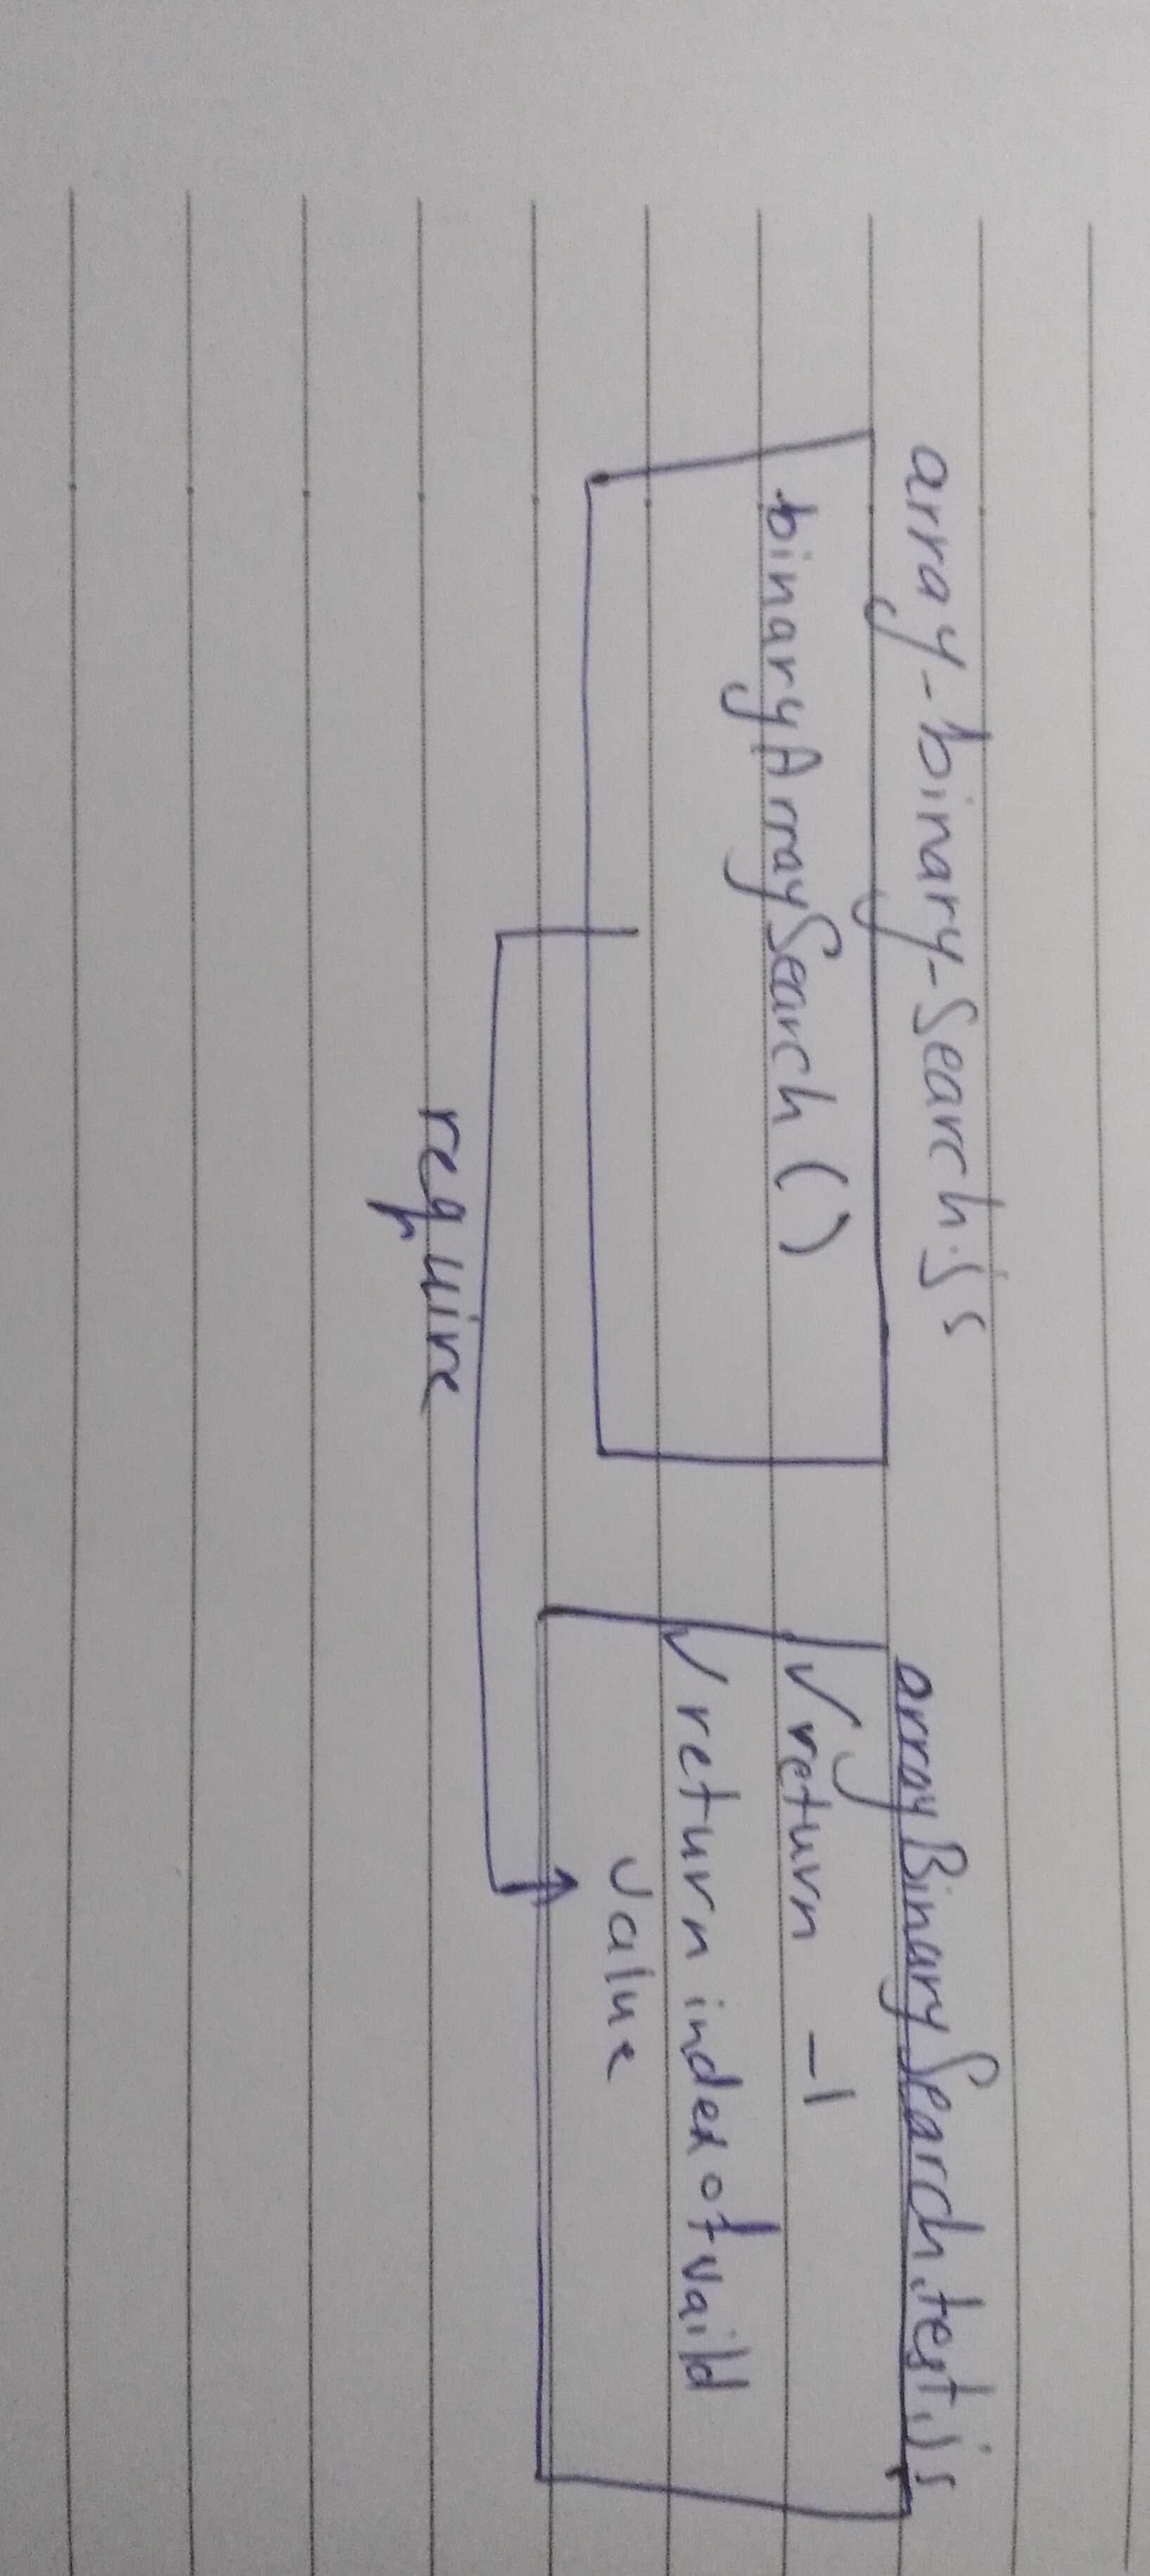 array-binary-Search.js
binaryArraySearch()
require
arrayBinarySearch.test.js
✓ return -1
✓ return index of vaild
value